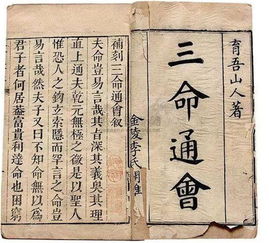 育吾山人著
三命通會
金陵李氏
補刻三命通會叙
夫命豈易言哉其旨深其義奥其理
直上通夫乾元無極之微是以聖人
惟恐人之鉤玄索隱而罕言之命豈
易言哉然夫子又曰不知命無以為
君子者何居葢富貴利達命也困窮